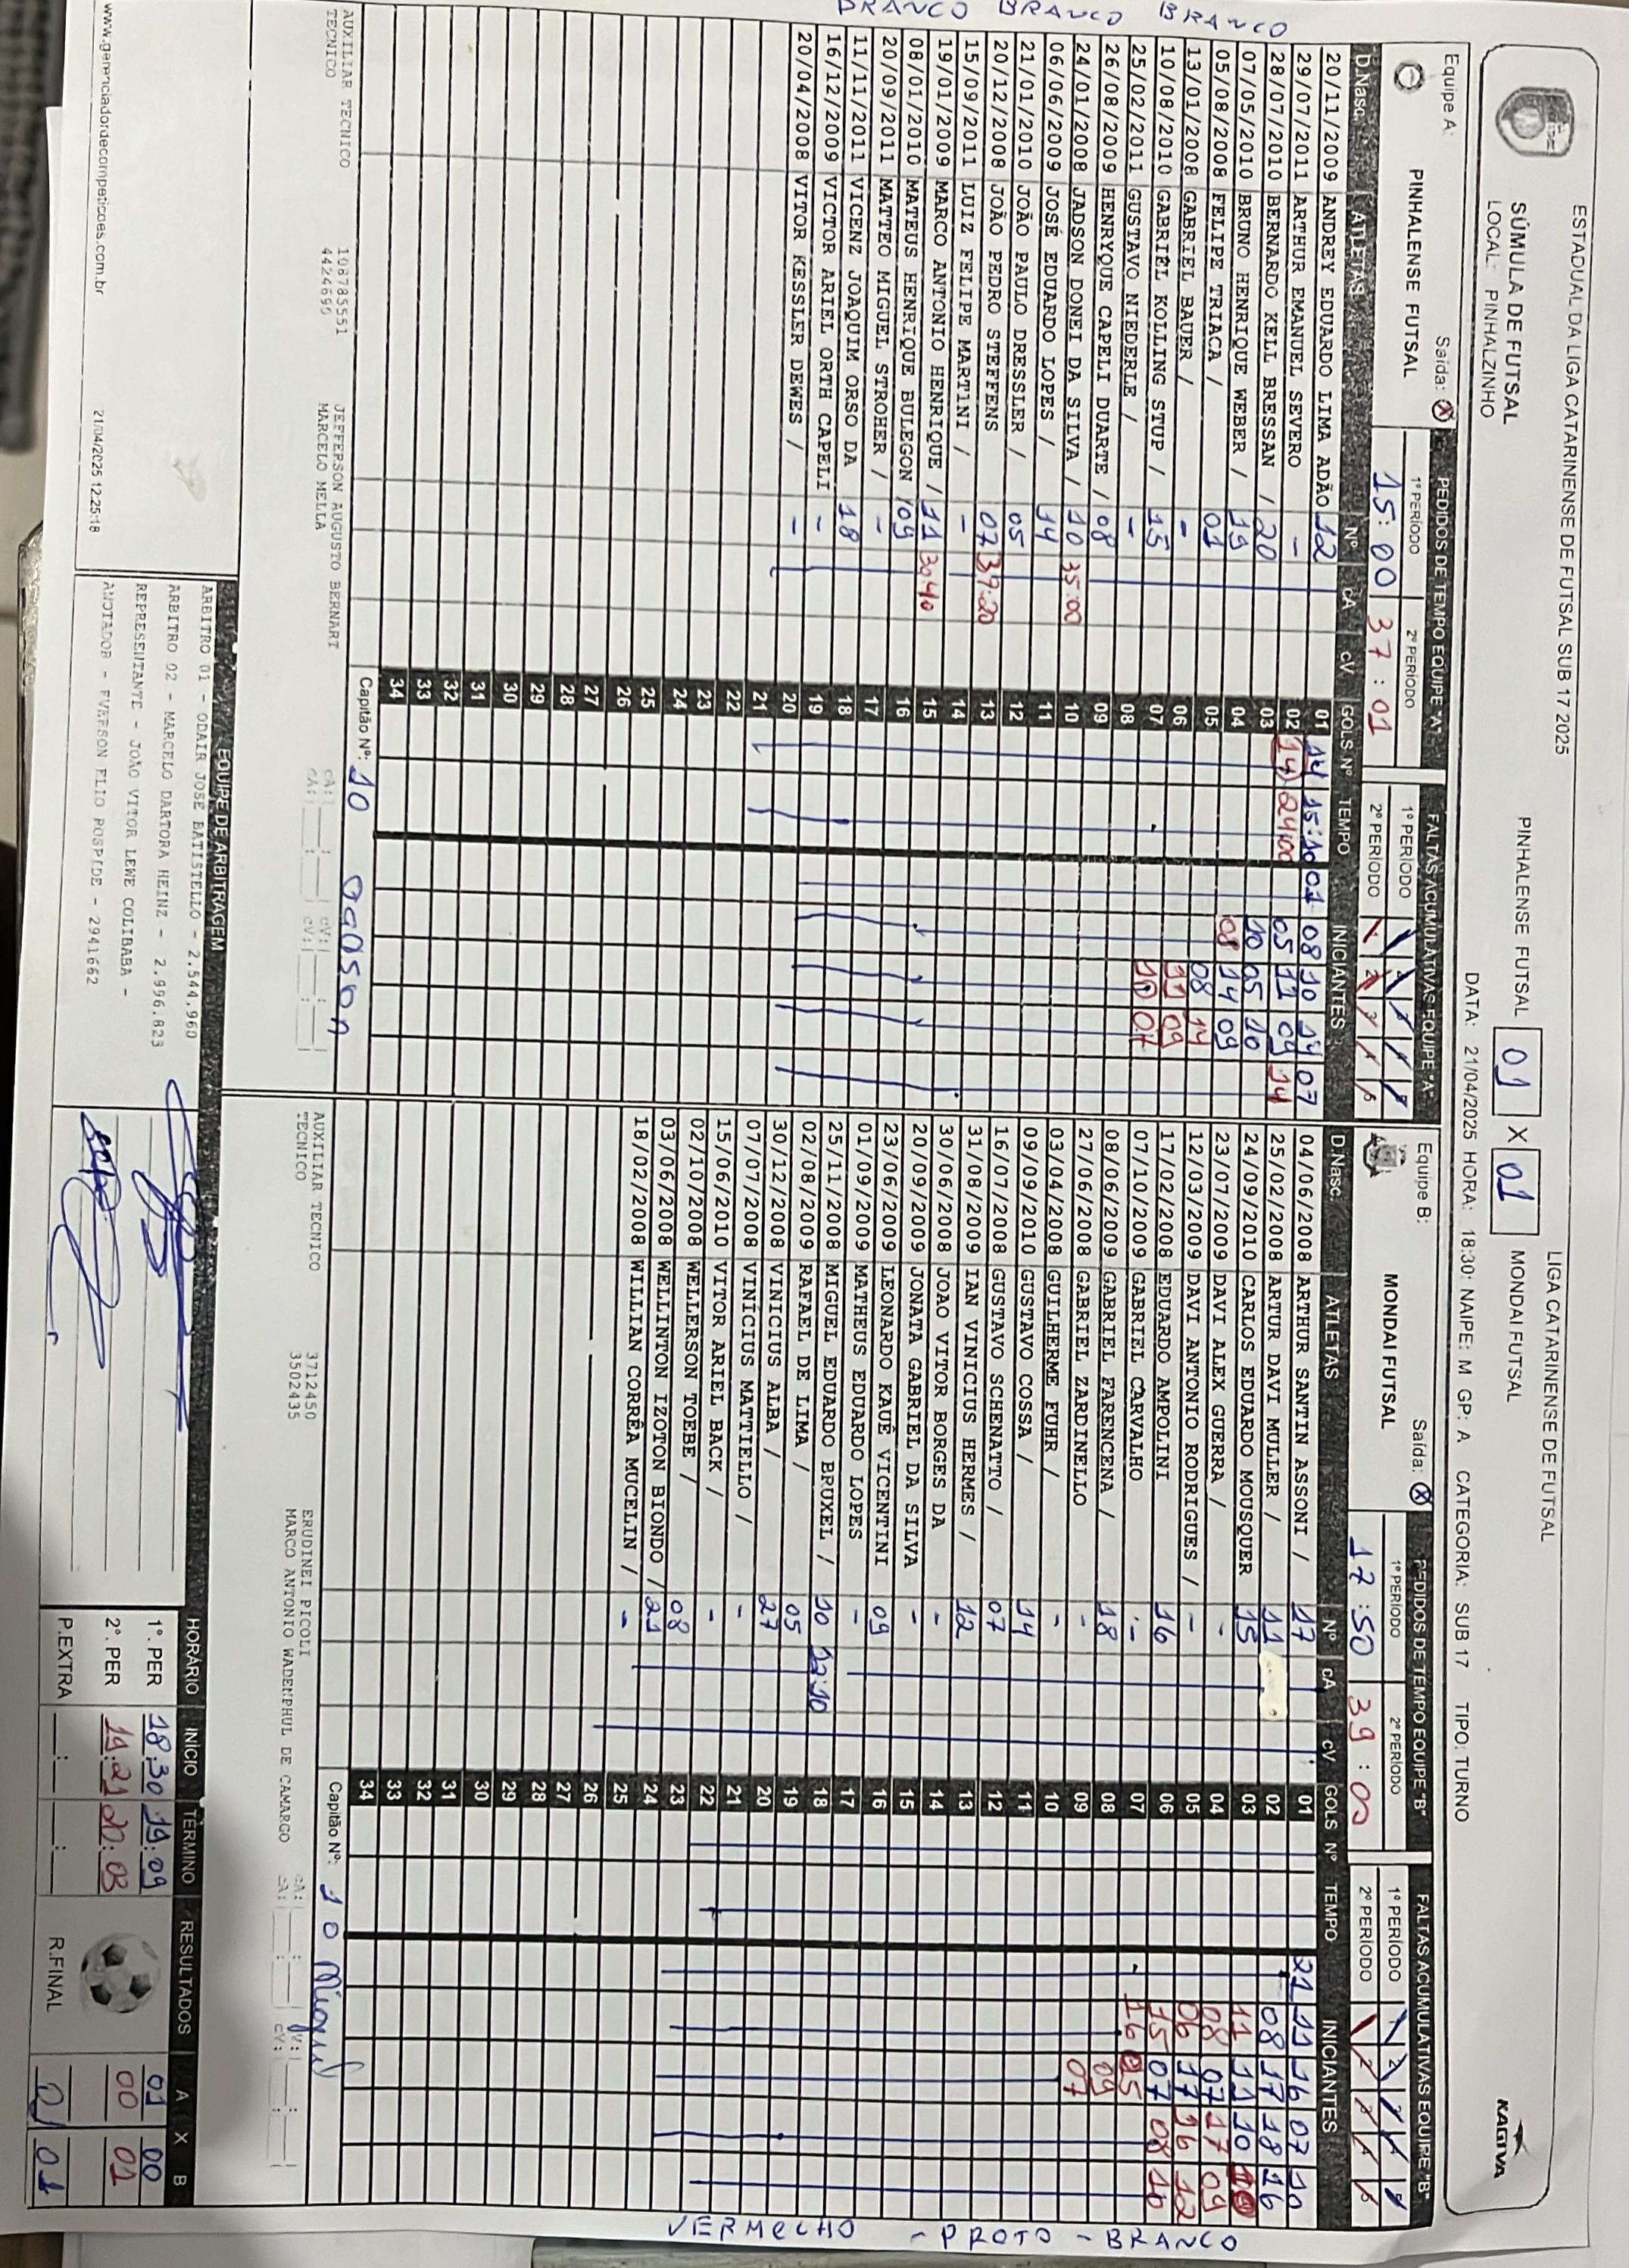 ESTADUAL DA LIGA CATARINENSE DE FUTSAL SUB 17 2025
LIGA CATARINENSE DE FUTSAL
SÚMULA DE FUTSAL
LOCAL: PINHALZINHO
PINHALENSE FUTSAL 01 X 01 MONDAI FUTSAL
KAGIVA
DATA: 21/04/2025 HORA: 18:30: NAIPE: M GP: A CATEGORIA: SUB 17 TIPO: TURNO
Equipe A: Saída: X
PINHALENSE FUTSAL
PEDIDOS DE TEMPO EQUIPE "A"
1º PERÍODO 2º PERÍODO
15:00 37:01
FALTAS ACUMULATIVAS EQUIPE "A"
1º PERÍODO
2º PERÍODO
D.Nasc. ATLETAS Nº cA cV GOLS Nº TEMPO INICIANTES
20/11/2009 ANDREY EDUARDO LIMA ADÃO 12 01 14 15:10 01 08 10 14 07
29/07/2011 ARTHUR EMANUEL SEVERO - 02 14 24:00 05 11 09 14
28/07/2010 BERNARDO KELL BRESSAN / 20 03 10 05 10
07/05/2010 BRUNO HENRIQUE WEBER / 19 04 08 14 09
05/08/2008 FELIPE TRIACA / 01 05 08 14
13/01/2008 GABRIEL BAUER / - 06 11 09
10/08/2010 GABRIEL KOLLING STUP / 15 07 10 07
25/02/2011 GUSTAVO NIEDERLE / - 08
26/08/2009 HENRYQUE CAPELI DUARTE / 08 09
24/01/2008 JADSON DONEI DA SILVA / 10 35:00 10
06/06/2009 JOSÉ EDUARDO LOPES / 14 11
21/01/2010 JOÃO PAULO DRESSLER / 05 12
20/12/2008 JOÃO PEDRO STEFFENS 07 39:20 13
15/09/2011 LUIZ FELIPE MARTINI / - 14
19/01/2009 MARCO ANTONIO HENRIQUE / 11 30:40 15
08/01/2010 MATEUS HENRIQUE BULEGON / 09 16
20/09/2011 MATTEO MIGUEL STROHER / - 17
11/11/2011 VICENZ JOAQUIM ORSO DA 18 18
16/12/2009 VICTOR ARIEL ORTH CAPELI - 19
20/04/2008 VITOR KESSLER DEWES / - 20
21
22
23
24
25
26
27
28
29
30
31
32
33
34
Capitão Nº: 10
AUXILIAR TECNICO 108785551 JEFFERSON AUGUSTO BERNART cA: cV:
TECNICO 4424690 MARCELO MELLA cA: cV:
Equipe B: Saída: X
MONDAI FUTSAL
PEDIDOS DE TEMPO EQUIPE "B"
1º PERÍODO 2º PERÍODO
17:50 39:00
FALTAS ACUMULATIVAS EQUIPE "B"
1º PERÍODO
2º PERÍODO
D.Nasc. ATLETAS Nº cA cV GOLS Nº TEMPO INICIANTES
04/06/2008 ARTHUR SANTIN ASSONI / 17 01 21 11 16 07 10
25/02/2008 ARTUR DAVI MULLER / 11 02 08 17 18 16
24/09/2010 CARLOS EDUARDO MOUSQUER 15 03 11 11 10
23/07/2009 DAVI ALEX GUERRA / - 04 08 07 17 09
12/03/2009 DAVI ANTONIO RODRIGUES / - 05 06 17 16 12
17/02/2008 EDUARDO AMPOLINI 16 06 15 07 08 10
07/10/2009 GABRIEL CARVALHO - 07 16 05
08/06/2009 GABRIEL FARENCENA / 18 08 09
27/06/2008 GABRIEL ZARDINELLO - 09 07
03/04/2008 GUILHERME FUHR / - 10
09/09/2010 GUSTAVO COSSA / 14 11
16/07/2008 GUSTAVO SCHENATTO / 07 12
31/08/2009 IAN VINICIUS HERMES / 12 13
30/06/2008 JOAO VITOR BORGES DA - 14
20/09/2009 JONATA GABRIEL DA SILVA - 15
23/06/2009 LEONARDO KAUÊ VICENTINI 09 16
01/09/2009 MATHEUS EDUARDO LOPES - 17
25/11/2008 MIGUEL EDUARDO BRUXEL / 10 12:10 18
02/08/2009 RAFAEL DE LIMA / 05 19
30/12/2008 VINICIUS ALBA / 27 20
07/07/2008 VINÍCIUS MATTIELLO / - 21
15/06/2010 VITOR ARIEL BACK / - 22
02/10/2008 WELLERSON TOEBE / 08 23
03/06/2008 WELLINTON IZOTON BIONDO / 21 24
18/02/2008 WILLIAN CORRÊA MUCELIN / - 25
26
27
28
29
30
31
32
33
34
Capitão Nº: 10 Miguel
AUXILIAR TECNICO 3712450 ERUDINEI PICOLI cA: cV:
TECNICO 3502435 MARCO ANTONIO WADENPHUL DE CAMARGO cA: cV:
EQUIPE DE ARBITRAGEM
ARBITRO 01 - ODAIR JOSÉ BATISTELLO - 2.544.960
ARBITRO 02 - MARCELO DARTORA HEINZ - 2.996.823
REPRESENTANTE - JOÃO VITOR LEWE COLIBABA -
ANOTADOR - EVERSON ELIO ROSPIDE - 2941662
HORÁRIO INÍCIO TÉRMINO RESULTADOS A X B
1º. PER 18:30 19:09 01 00
2º. PER 19:21 20:03 00 01
P.EXTRA R.FINAL 01 01
www.gerenciadordecompeticoes.com.br 21/04/2025 12:25:18
BRANCO BRANCO BRANCO
VERMELHO - PROTO - BRANCO